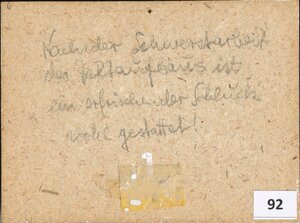 Nach der Schwerstarbeit
des Zeltaufbaus ist
ein erfrischender Schluck
wohl gestattet!
92